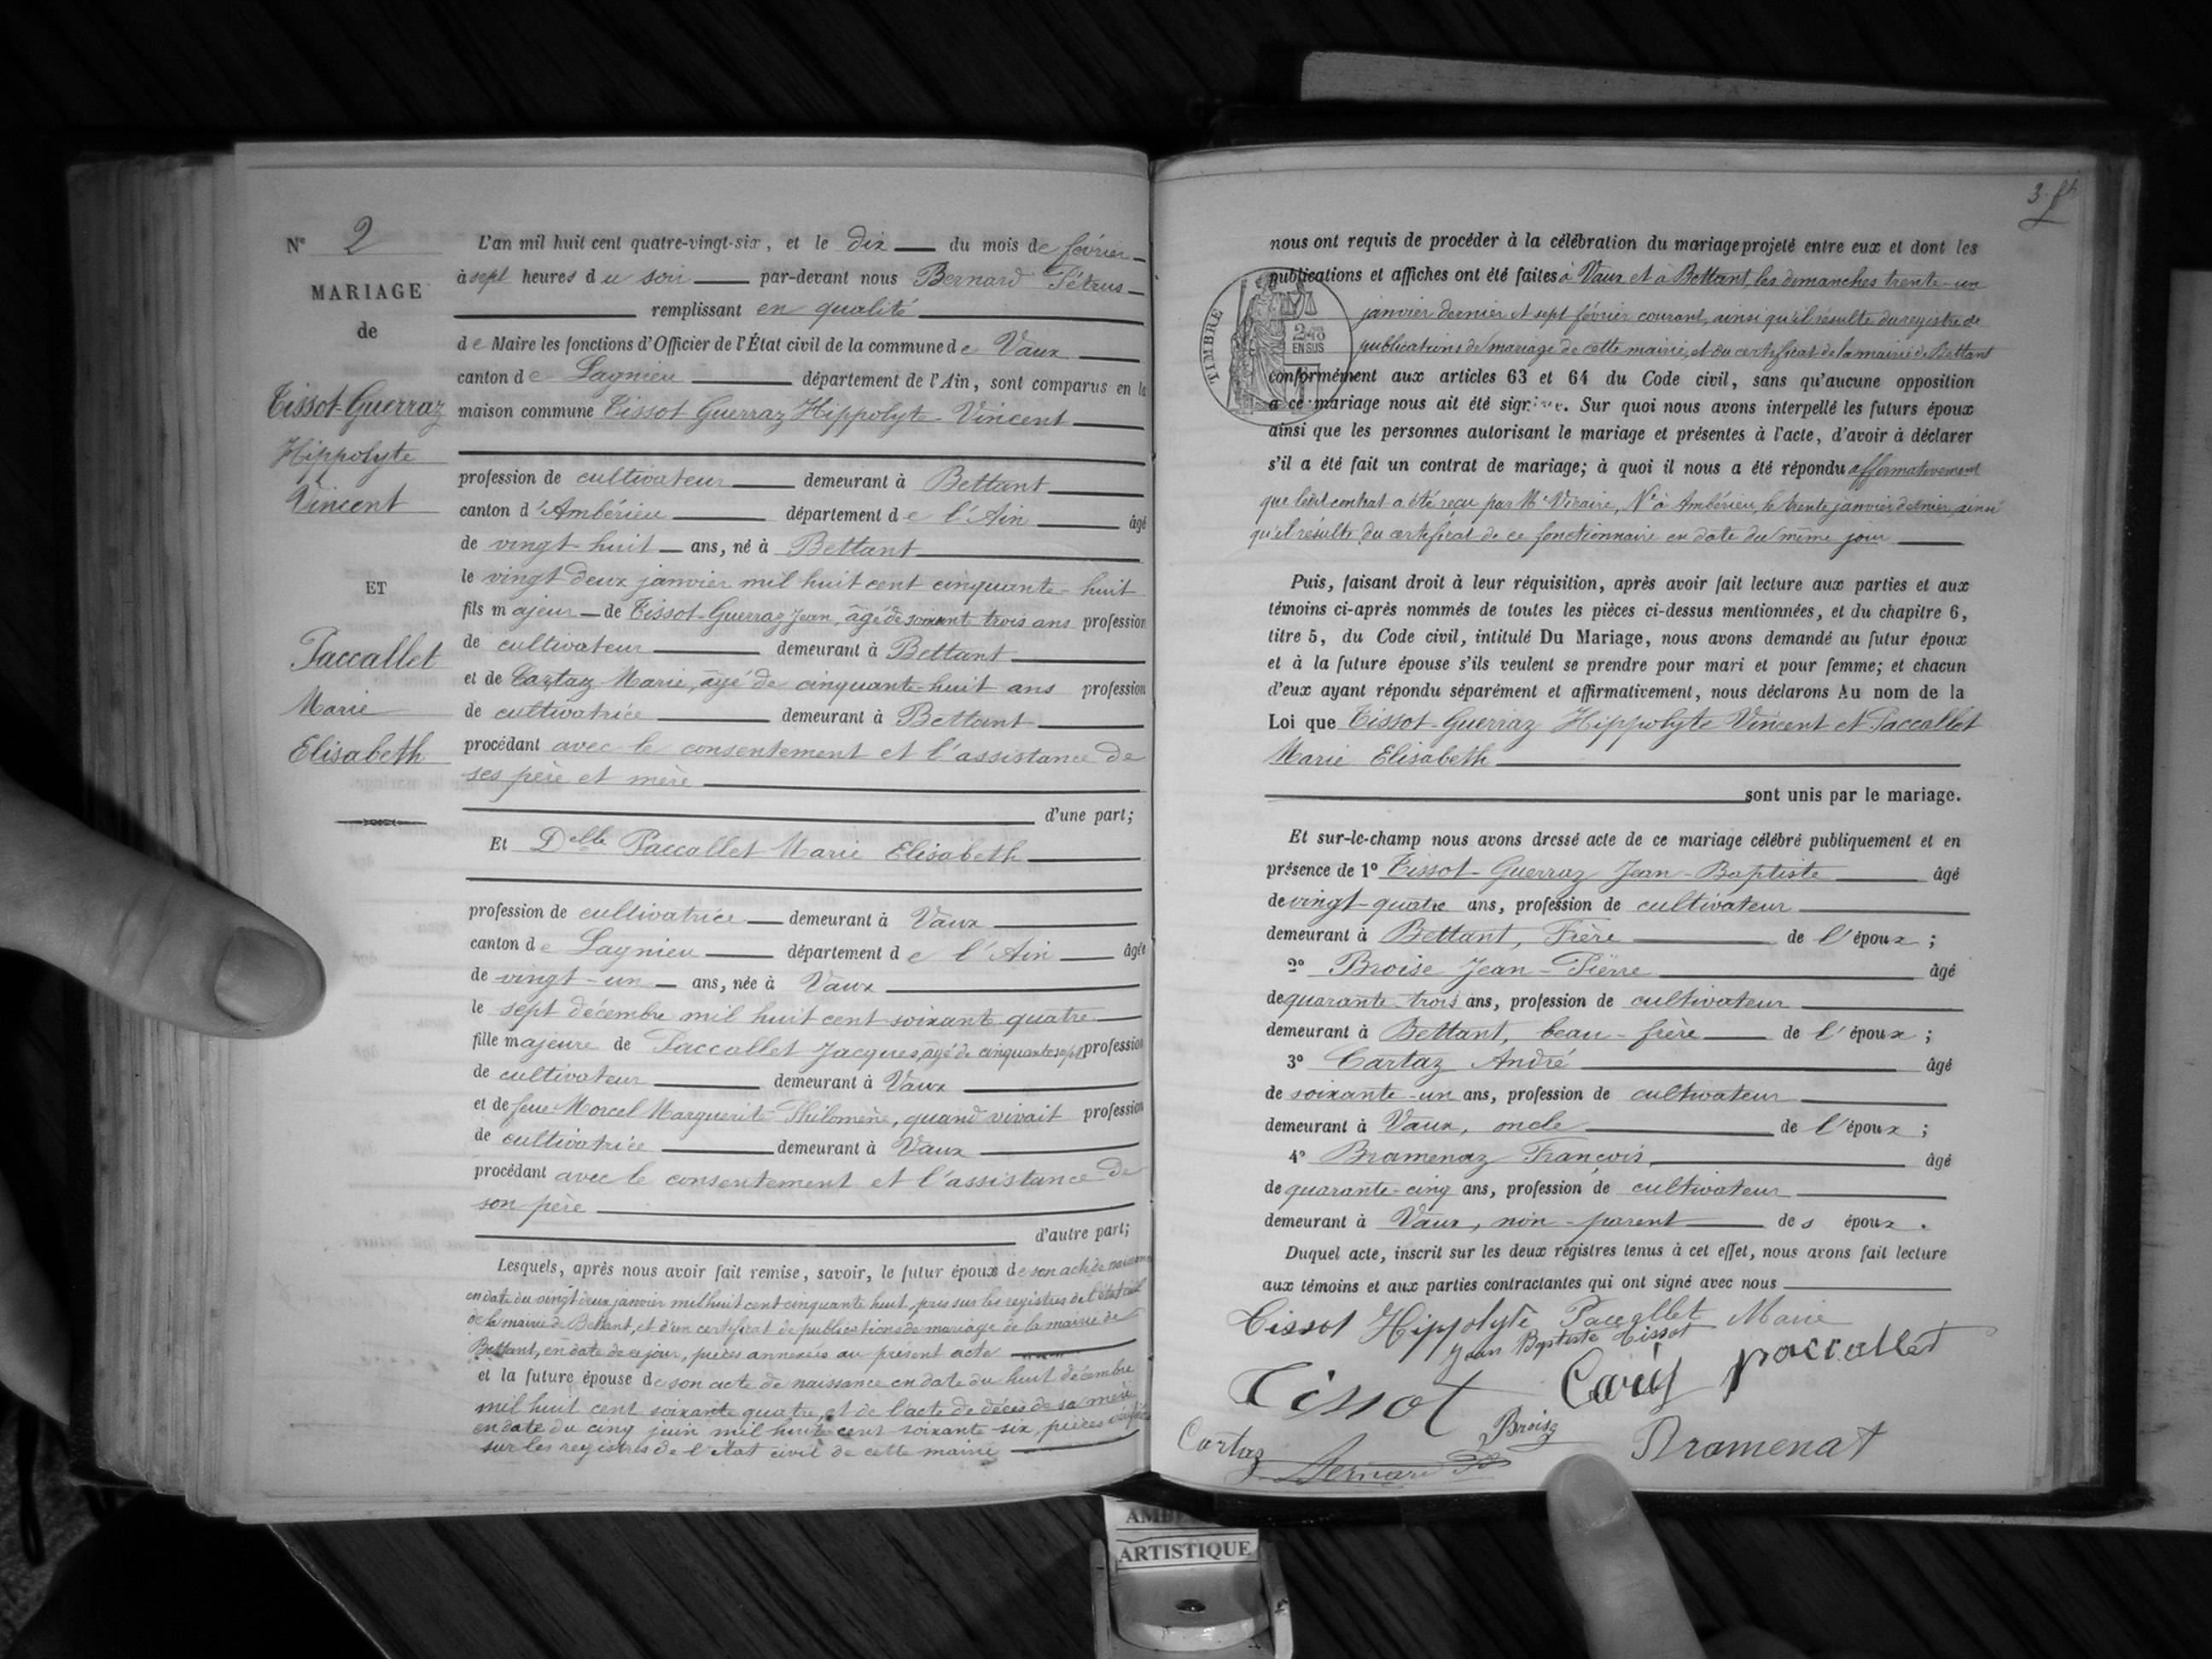 N° 2
MARIAGE
de
Tissot-Guerraz
Hippolyte
Vincent
ET
Paccallet
Marie
Elisabeth
L'an mil huit cent quatre-vingt-six, et le dix du mois de février
à sept heures du soir par-devant nous Bernard Pétrus
remplissant en qualité
de Maire les fonctions d'Officier de l'État civil de la commune de Vaux
canton de Lagnieu département de l'Ain, sont comparus en la
maison commune Tissot Guerraz Hippolyte-Vincent
profession de cultivateur demeurant à Bettant
canton d'Ambérieu département de l'Ain âgé
de vingt-huit ans, né à Bettant
le vingt deux janvier mil huit cent cinquante-huit
fils majeur de Tissot-Guerraz Jean, âgé de soixante trois ans profession
de cultivateur demeurant à Bettant
et de Cartaz Marie, âgé de cinquante-huit ans profession
de cultivatrice demeurant à Bettant
procédant avec le consentement et l'assistance de
ses père et mère
d'une part;
Et Delle Paccallet Marie Elisabeth
profession de cultivatrice demeurant à Vaux
canton de Lagnieu département de l'Ain âgée
de vingt-un ans, née à Vaux
le sept décembre mil huit cent soixant quatre
fille majeure de Paccallet Jacques, âgé de cinquante sept profession
de cultivateur demeurant à Vaux
et de feue Morcel Marguerite Philomène, quand vivait profession
de cultivatrice demeurant à Vaux
procédant avec le consentement et l'assistance de
son père
d'autre part;
Lesquels, après nous avoir fait remise, savoir, le futur époux de son acte de naissance
en date du vingt deux janvier mil huit cent cinquante huit, pris sur les registres de l'état civil
de la mairie de Bettant, et d'un certificat de publications de mariage de la mairie de
Bettant, en date de ce jour, pièces annexées au présent acte
et la future épouse de son acte de naissance en date du huit décembre
mil huit cent soixante quatre, et de l'acte de décès de sa mère
en date du cinq juin mil huit cent soixante six, pièces
sur les registres de l'état civil de cette mairie
3
nous ont requis de procéder à la célébration du mariage projeté entre eux et dont les
publications et affiches ont été faites à Vaux et à Bettant, les dimanches trente-un
janvier dernier et sept février courant, ainsi qu'il résulte du registre de
publications de mariage de cette mairie, et du certificat de la mairie de Bettant
TIMBRE
EN SUS
conformément aux articles 63 et 64 du Code civil, sans qu'aucune opposition
à ce mariage nous ait été signifiée. Sur quoi nous avons interpellé les futurs époux
ainsi que les personnes autorisant le mariage et présentes à l'acte, d'avoir à déclarer
s'il a été fait un contrat de mariage; à quoi il nous a été répondu affirmativement
que ledit contrat a été reçu par Me Vicaire, Nre à Ambérieu, le trente janvier dernier, ainsi
qu'il résulte du certificat de ce fonctionnaire en date du même jour
Puis, faisant droit à leur réquisition, après avoir fait lecture aux parties et aux
témoins ci-après nommés de toutes les pièces ci-dessus mentionnées, et du chapitre 6,
titre 5, du Code civil, intitulé Du Mariage, nous avons demandé au futur époux
et à la future épouse s'ils veulent se prendre pour mari et pour femme; et chacun
d'eux ayant répondu séparément et affirmativement, nous déclarons Au nom de la
Loi que Tissot-Guerraz Hippolyte Vincent et Paccallet
Marie Elisabeth
sont unis par le mariage.
Et sur-le-champ nous avons dressé acte de ce mariage célébré publiquement et en
présence de 1° Tissot-Guerraz Jean-Baptiste âgé
de vingt-quatre ans, profession de cultivateur
demeurant à Bettant, Frère de l'époux;
2° Broise Jean-Pierre âgé
de quarante-trois ans, profession de cultivateur
demeurant à Bettant, beau-frère de l'époux;
3° Cartaz André âgé
de soixante-un ans, profession de cultivateur
demeurant à Vaux, oncle de l'époux;
4° Bramenaz François âgé
de quarante-cinq ans, profession de cultivateur
demeurant à Vaux, non-parent des époux.
Duquel acte, inscrit sur les deux registres tenus à cet effet, nous avons fait lecture
aux témoins et aux parties contractantes qui ont signé avec nous
Tissot Hippolyte Paccallet Marie
Jean Baptiste Tissot
Tissot paccallet
Cartaz Broise Bramenat
Bernard
ARTISTIQUE